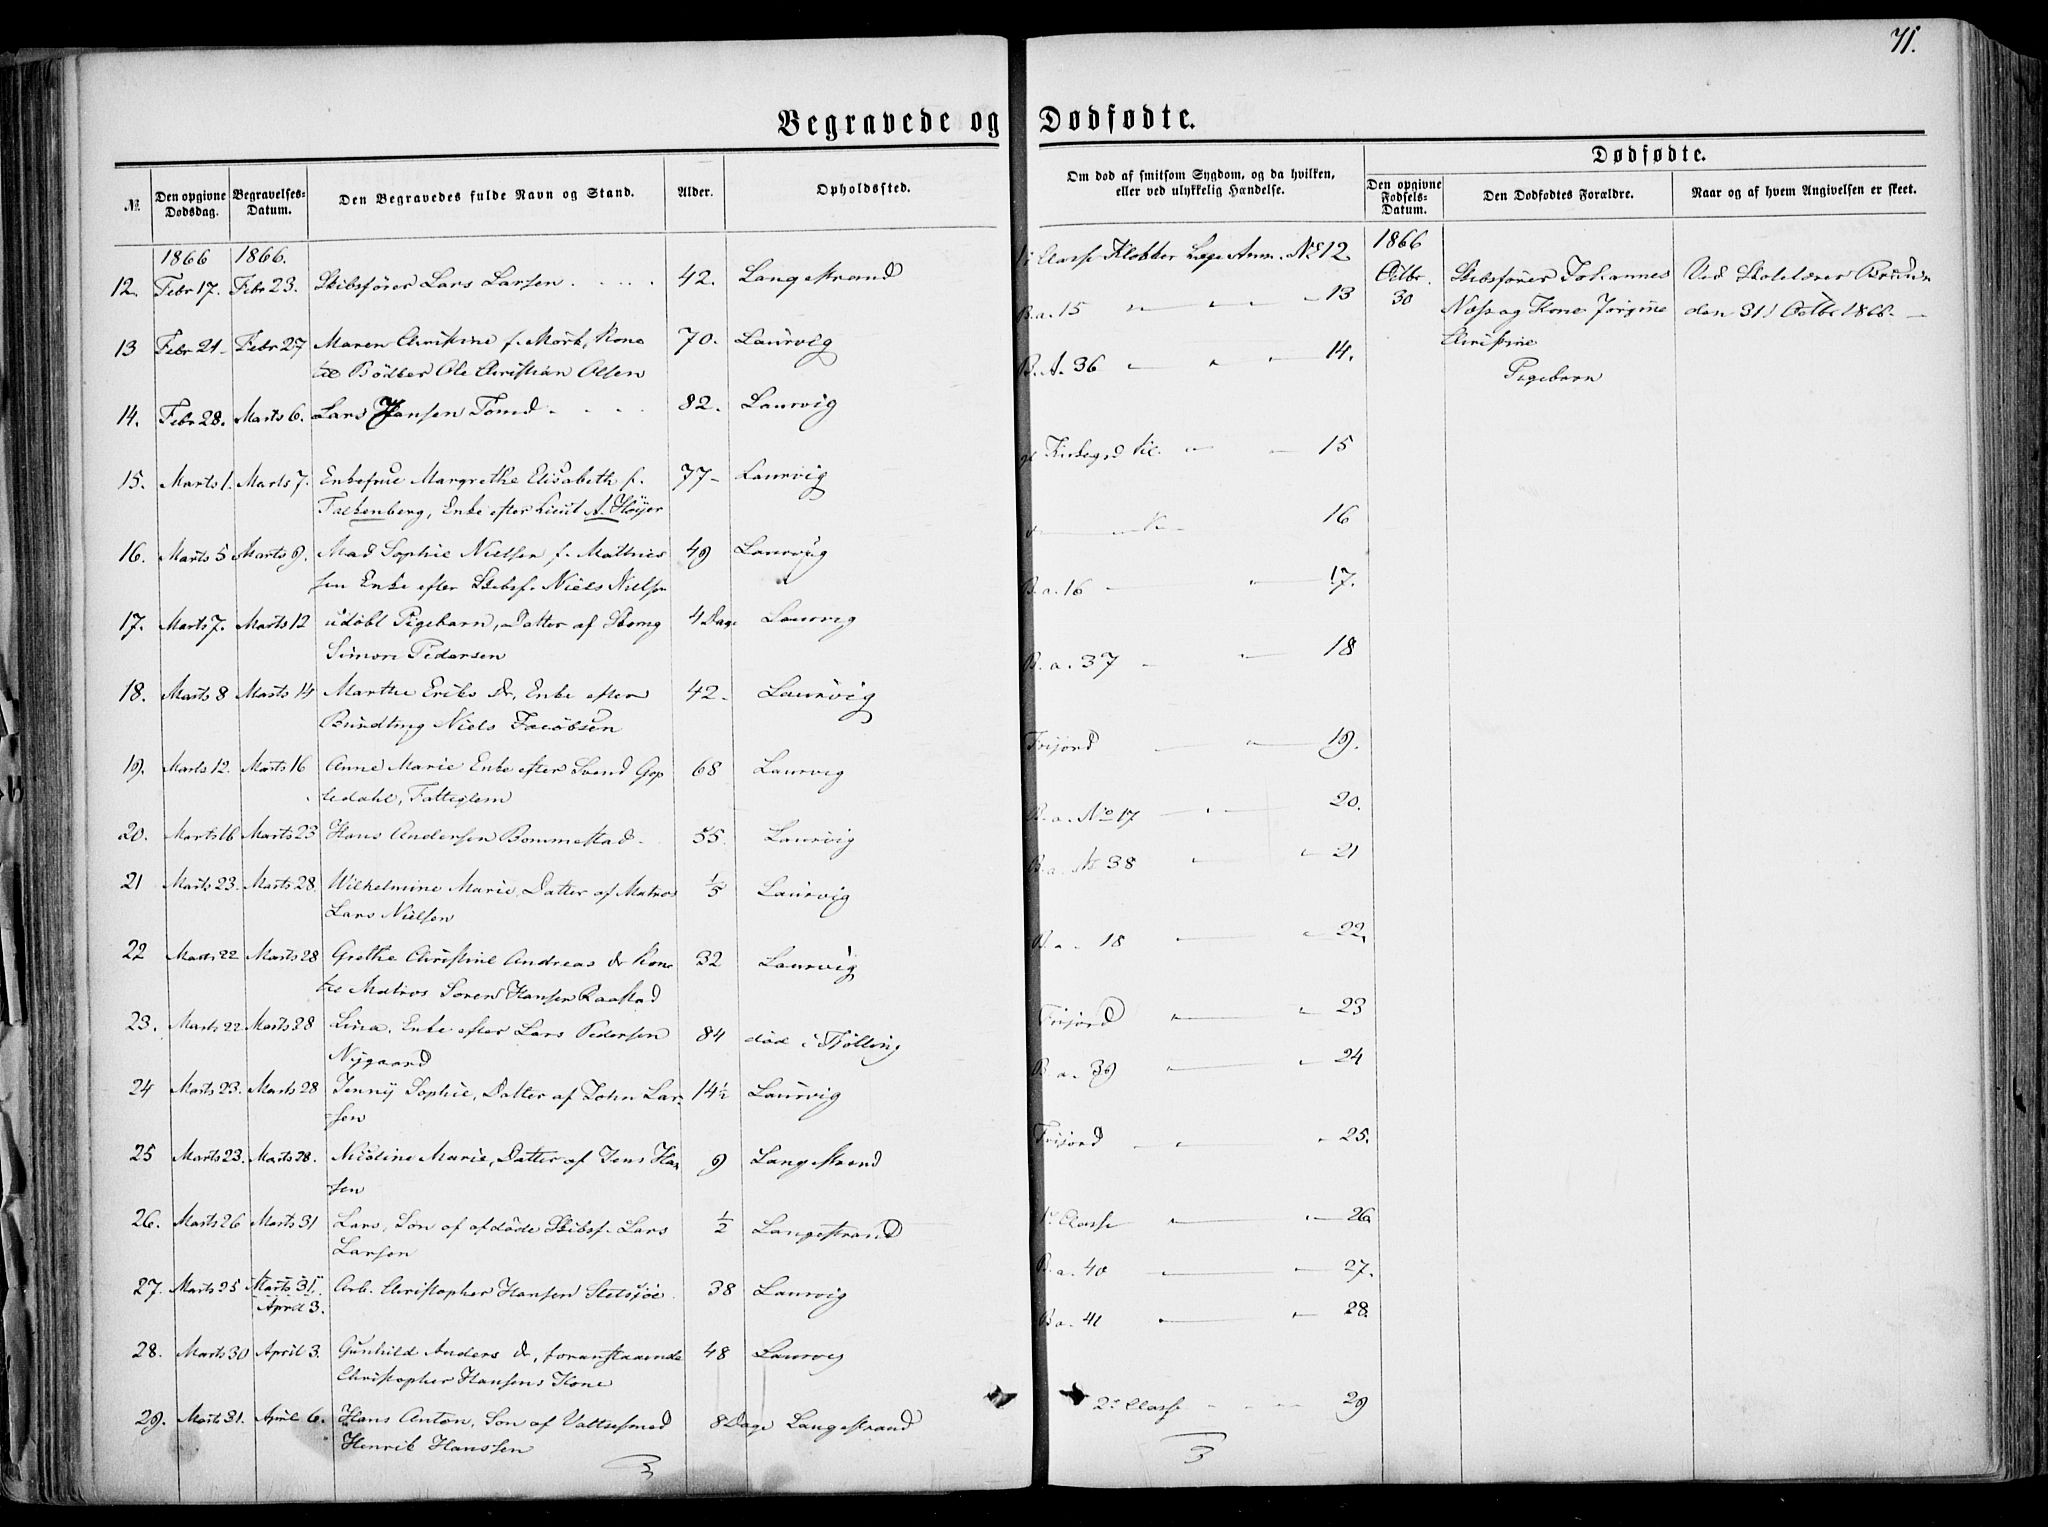 71.
Begravede og Dødfødte.
Dødfødte.
№
Den opgivne Dødsdag.
Begravelses-Datum.
Den Begravedes fulde Navn og Stand.
Alder.
Opholdssted.
Om død af smitsom Sygdom, og da hvilken, eller ved ulykkelig Hændelse.
Den opgivne Fødsels-Datum.
Den Dødfødtes Forældre.
Naar og af hvem Angivelsen er skeet.
1866 1866.
12. Febr 17. Febr 23. Skibsfører Lars Larsen 42. Langestrand
13 Febr 21 Febr 27 Maren Christine f. Mørk, Kone 70. Laurvig
til Bødker Ole Christian Olsen
14. Febr 28. Marts 6. Lars Hansen 82. Laurvig
15. Marts 1. Marts 7. Enkefrue Margrethe Elisabeth f. 77 Laurvig
Falkenberg, Enke efter Lieut A. Høyer
16. Marts 5 Marts 9. Mad Sophie Nielsen f. Mathies 49 Laurvig
sen Enke efter Skibsf. Niels Nielsen
17. Marts 7. Marts 12 udøbt Pigebarn, Datter af 4 Dage Laurvig
Simon Pedersen
18. Marts 8 Marts 14 Marthe Eriks Dr, Enke efter 42. Laurvig
Niels Jacobsen
19. Marts 12. Marts 16 Anne Marie Enke efter Svend Gop 68 Laurvig
ledahl, Fattiglem
20. Marts 16 Marts 23 Hans Andersen Bommestad 55 Laurvig
21 Marts 23. Marts 28. Wilhelmine Marie, Datter af Matros 1/5 Laurvig
Lars Nielsen
22 Marts 22 Marts 28 Grethe Christine Andreas dr Kone 32 Laurvig
til Matros Søren Hansen Raastad
23. Marts 22 Marts 28 Lina, Enke efter Lars Pedersen 84 død i Tjølling
Nygaard
24 Marts 23. Marts 28 Jenny Sophie, Datter af John Lar- 14½ Laurvig
sen
25 Marts 23. Marts 28. Nicoline Marie, Datter af Jens Han 9 Langestrand
sen
26. Marts 26 Marts 31 Lars, Søn af afdøde Skibsf. Lars 1/2 Langestrand
Larsen
27. Marts 25 Marts 31. Arb. Christopher Hansen 38 Laurvig
April 3.
28. Marts 30 April 3. Gunhild Anders dr, foranstaaende 48 Laurvig
Christopher Hansens Kone
29. Marts 31. April 6. Hans Anton, Søn af Valtsesmed 8 Dage Langestrand
Henrik Hanssen
Classe Klokker Lege Ann. No 12
B.a. 15 " " 13
B. A. 36 " " 14.
gl Kirkegrd til " 15
" " 16
B.a. 16 " " 17.
B.a. 37 " " 18
Frijord " " 19.
B.a. No 17 " 20.
B.a. No 38 " " 21
B.a. 18 " " 22.
Frijord " " 23
B.a. 39 " " 24
Frijord " " 25.
1ste Classe " " 26
B.a. 40 " " 27.
B.a. 41 " " 28.
2den Classe " " 29
1866
Octbr. 30
Skibsfører Johannes
Næss og Kone Jørgine
Christine
Pigebarn
Ved Skolelærer Bruun
den 31. Octbr 1866.